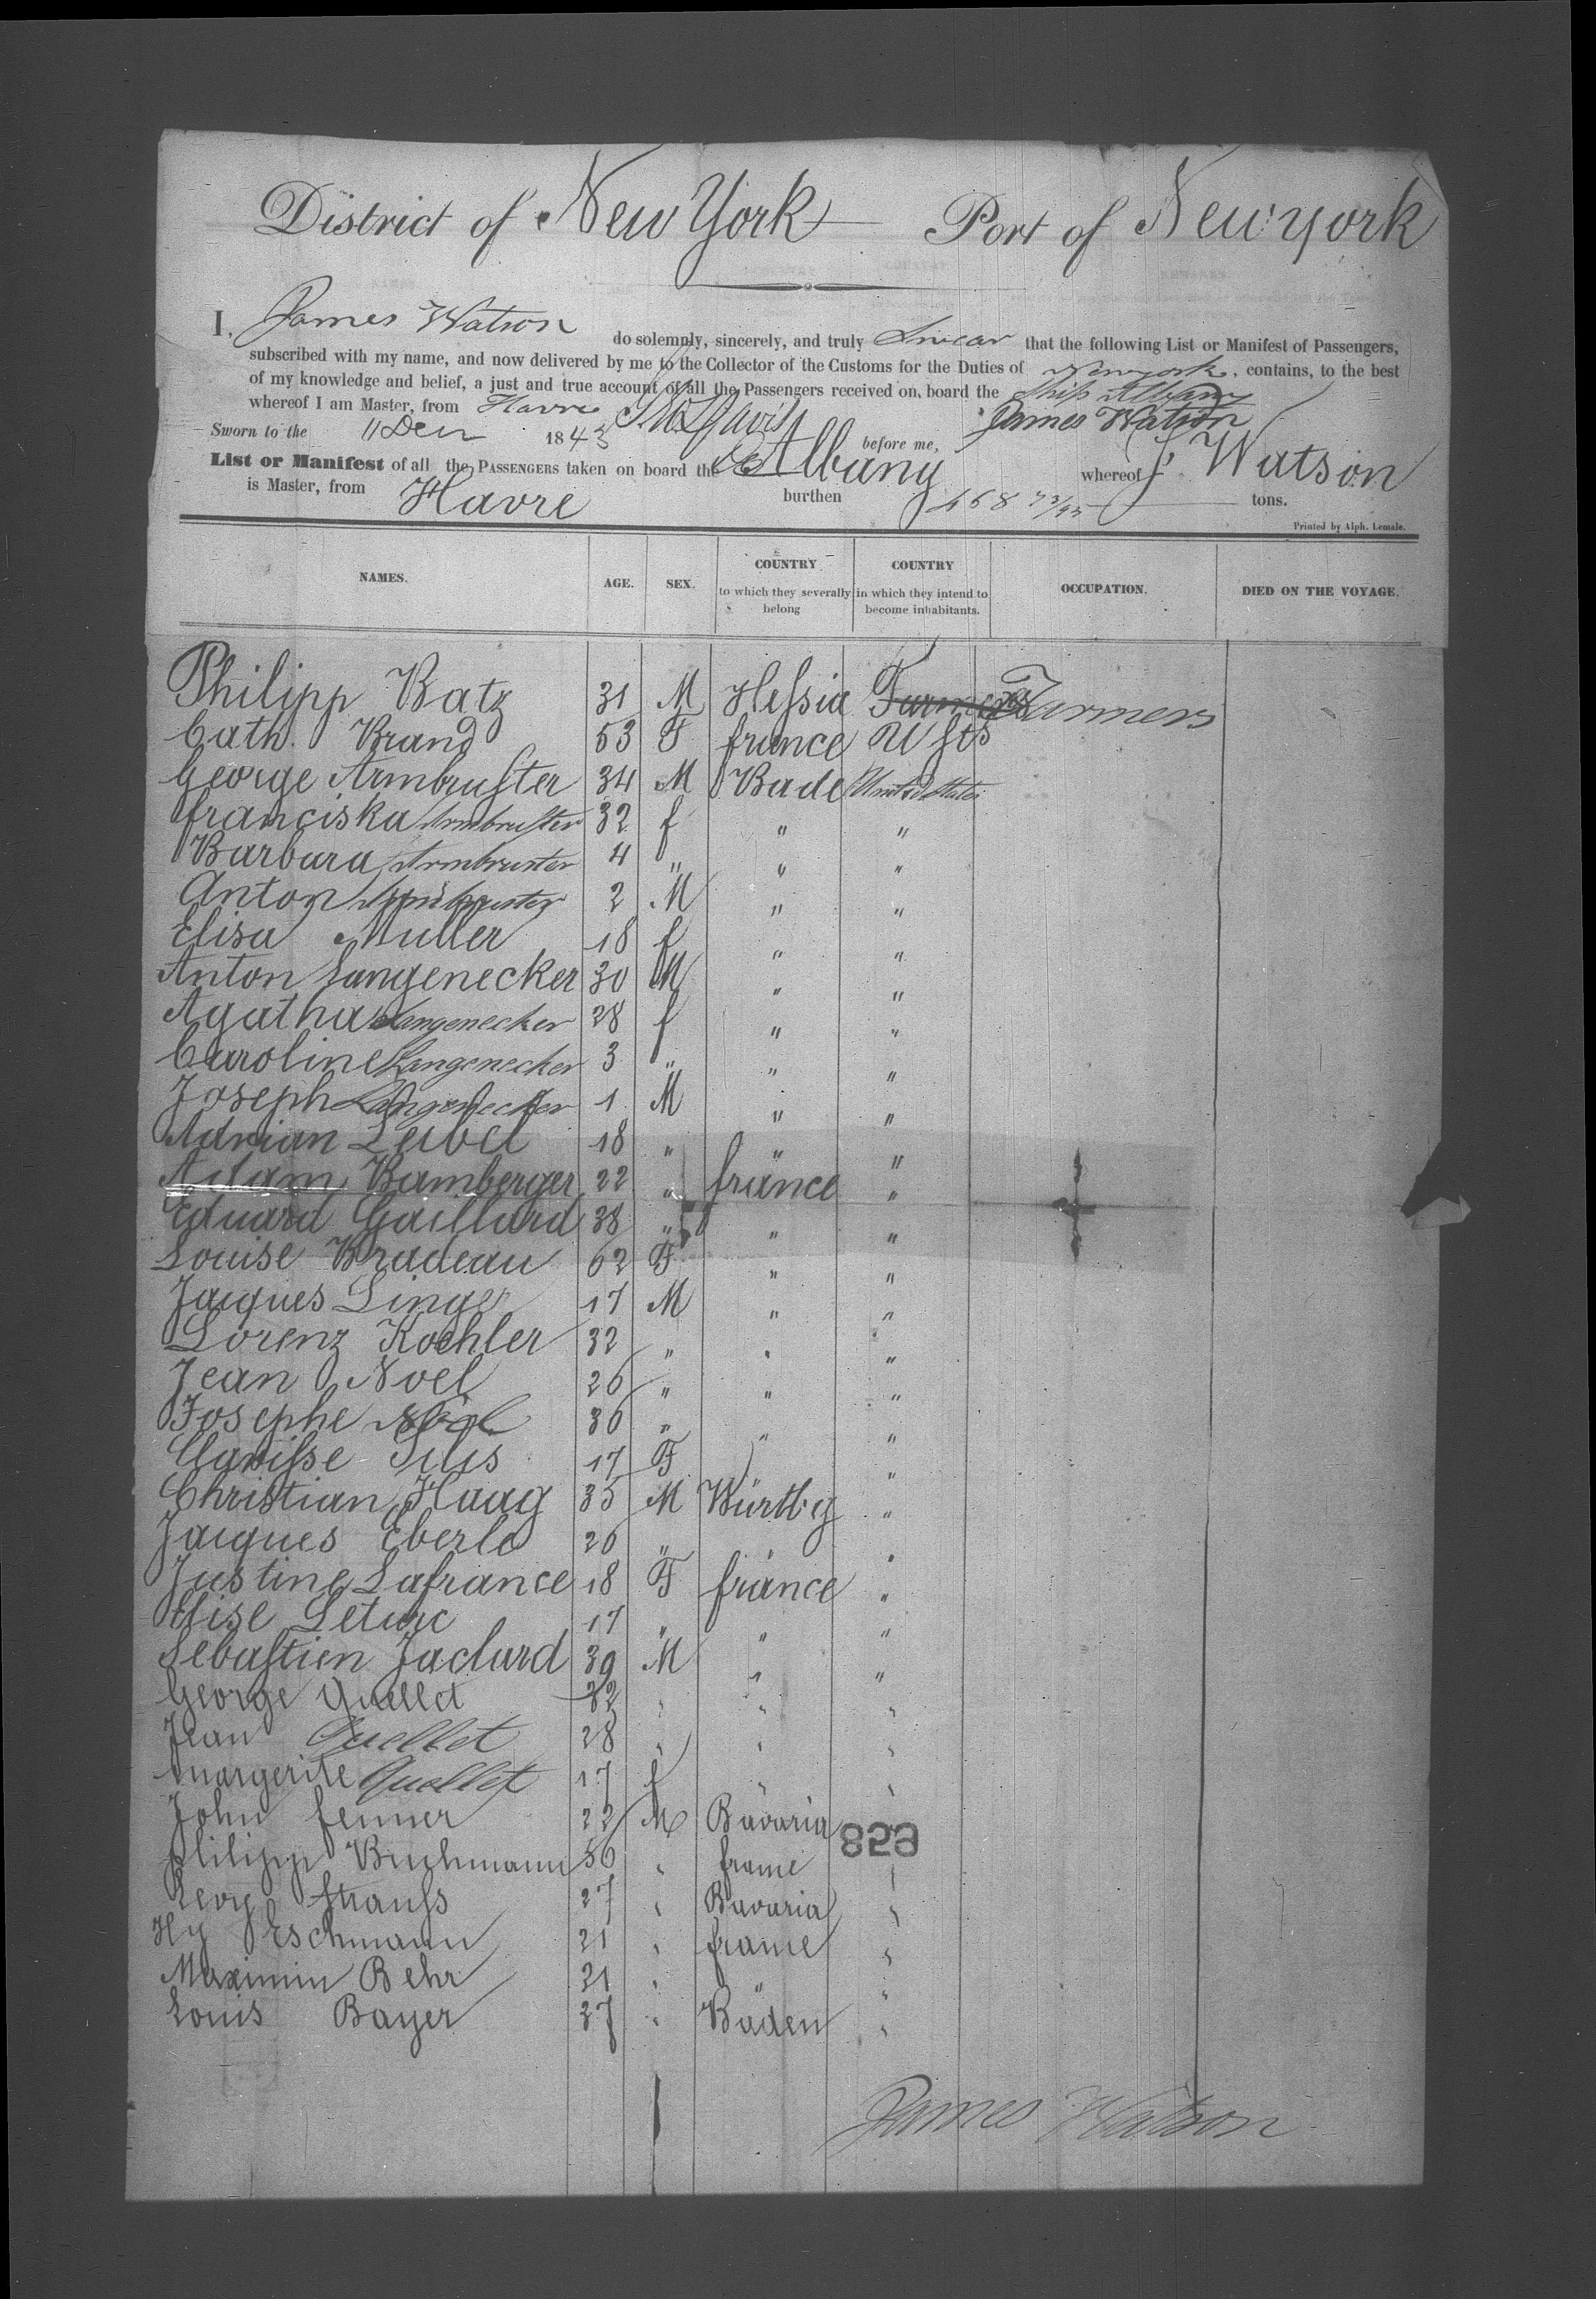 District of New York Port of New York
I. James Watson do solemnly, sincerely, and truly Swear that the following List or Manifest of Passengers,
subscribed with my name, and now delivered by me to the Collector of the Customs for the Duties of Newyork, contains, to the best
of my knowledge and belief, a just and true account of all the Passengers received on board the Ship Albany
whereof I am Master, from Havre James Watson
Sworn to the 11 Dec 1843 before me,
List or Manifest of all the PASSENGERS taken on board the Albany whereof J Watson
is Master, from Havre burthen 468 73/95 tons.
Printed by Alph. Lemale.
NAMES. AGE. SEX. COUNTRY to which they severally belong COUNTRY in which they intend to become inhabitants. OCCUPATION. DIED ON THE VOYAGE.
Philipp Batz 31 M Hessia Farmers Farmers
Cath. Brand 53 F france U Sts
George Armbruster 34 M Bade United States
franciska Armbruster 32 f " "
Barbara Armbruster 4 " " "
Anton Armbruster 2 M " "
Elisa Muller 18 f " "
Anton Langenecker 30 M " "
Agatha Langenecker 28 f " "
Caroline Langenecker 3 " " "
Joseph Langenecker 1 M " "
Adrian Leibel 18 " " "
Adam Bamberger 22 " france "
Eduard Gaillard 38 " " "
Louise Bradeau 62 F " "
Jacques Singer 17 M " "
Lorenz Koehler 32 " " "
Jean Noel 26 " " "
Josephe Noel 36 " " "
Clarisse Silis 17 F " "
Christian Haag 35 M Würtbg "
Jacques Eberle 26 " " "
Justine Lafrance 18 F france "
Elise Leturc 17 " " "
Sebastien Jaclard 39 M " "
George Quellet 32 " " "
Jean Quellet 28 " " "
Margerite Quellet 17 f " "
John fenner 22 M Bavaria "
859
Philipp Buchmann 56 " france "
Levy Strauss 27 " Bavaria "
Hy Eschmann 21 " france "
Maximin Behr 21 " " "
Louis Bayer 37 " Baden "
James Watson